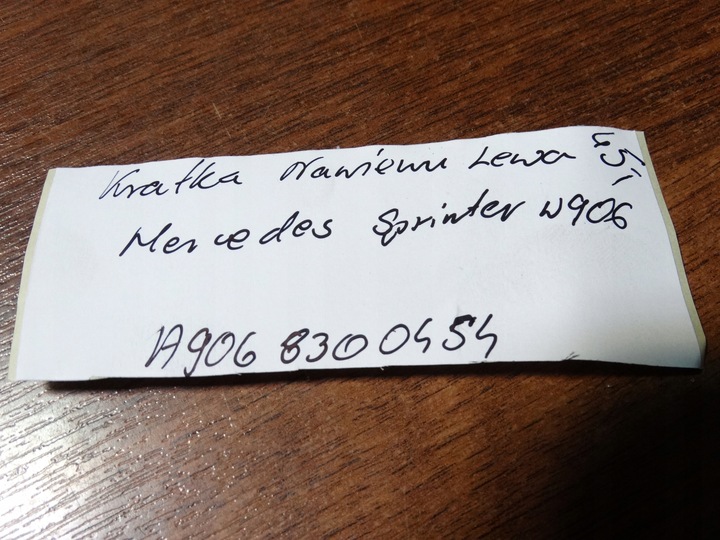 Kratka nawiewu Lewa
45,-
Mercedes Sprinter W906
A906 830 0454